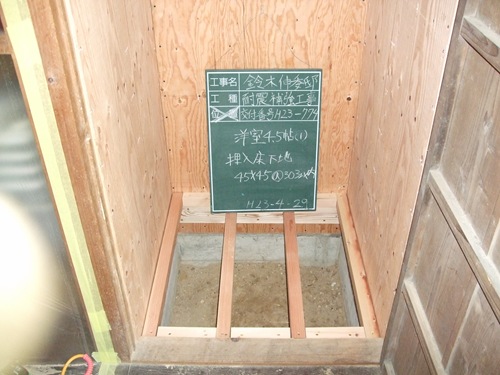 工事名 鈴木伸委邸
工種 耐震補強工事
位置 交付番号H23-774
洋室4.5帖(1)
押入床下地
45×45@303
H23-4-29